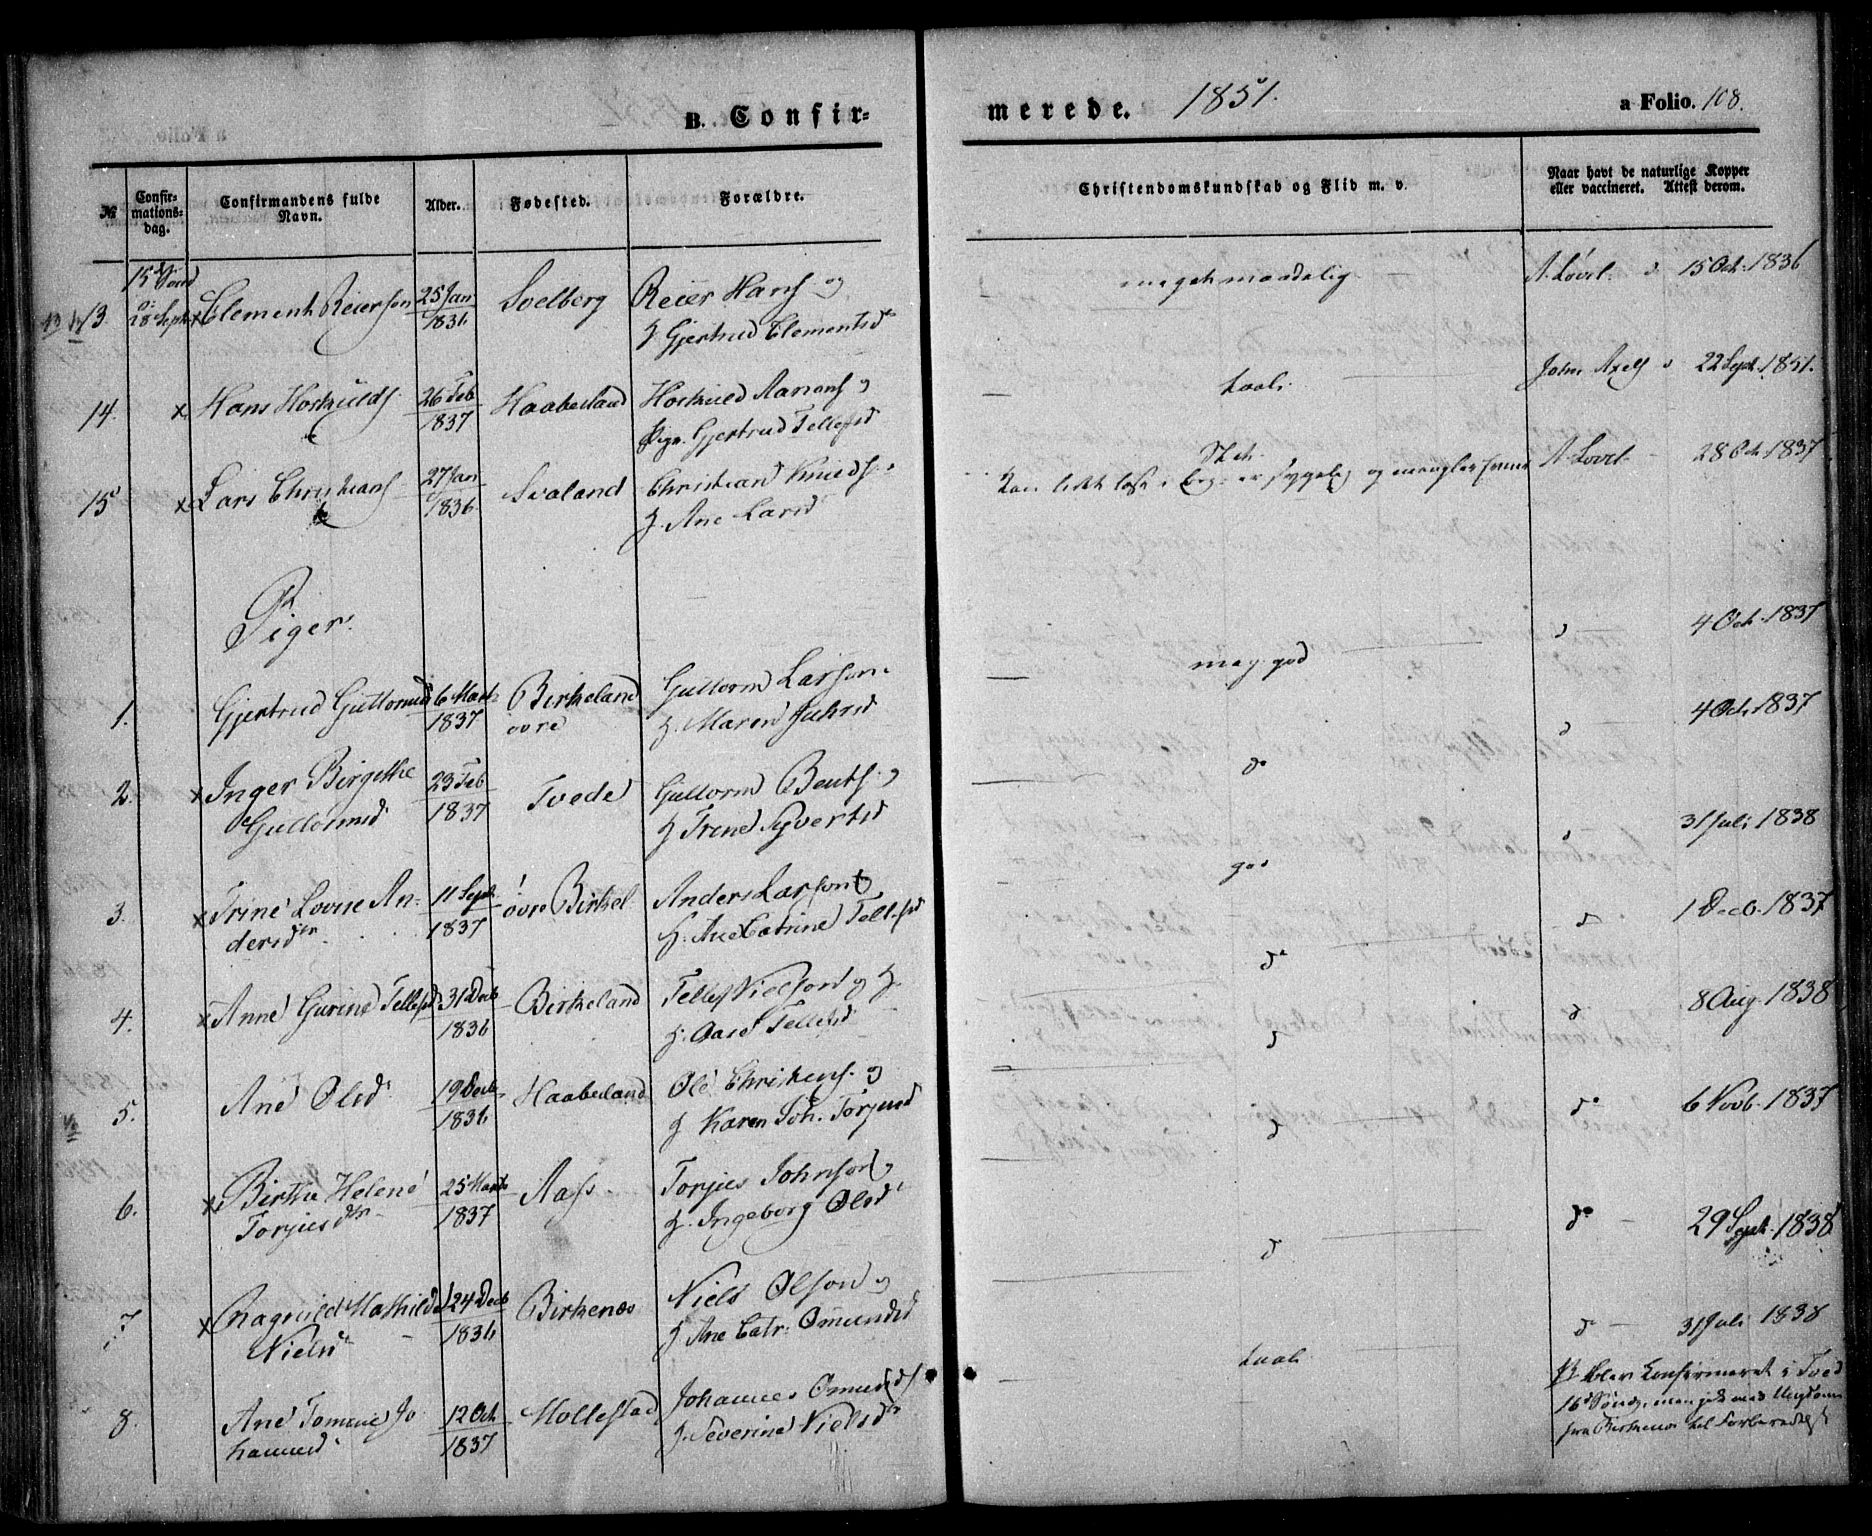 B. Confir-
merede. 1851. a Folio. 108.
№
Confir-
mations-
dag.
Confirmandens fulde
Navn.
Alder.
Fødested.
Forældre.
Christendomskundskab og Flid m. v.
Naar havt de naturlige Kopper
eller vaccineret. Attest derom.
13 28 Sept. x Clement Reierson 25 Jan 1836 Svelberg Reier Hans og
H Gjertrud Clementsd
meget maadelig A. Løvl. d 15 Oct. 1836
14. x Hans Hoskulds 26 Feb 1837 Haabesland Hoskuld Aanons og
Pige. Gjertrud Tellefsd
taal. John Axels d 22 Sept. 1851.
15 x Lars Christians 27 Jan 1836 Svaland Christian Knuds.
H. Ane Larsd
Slet.
Kan lidt læse i Bog er sygelig og mangler A. Løvl 28 Oct. 1837
Piger.
1. Gjertrud Guttormsd 6 Marts 1837 Birkeland
øvre
Guttorm Larson
H. Maren
mag. god d 4 Oct. 1837
2. x Inger Birgithe
Guttormsd
23 Feb 1837 Tvede Guttorm Bents. og
H Trine Syvertsd
do d 4 Oct. 1837
3. x Trine Lovise An-
dersdtr
11 Sept. 1837 øvre Birkel Anders Larson og
H. Ane Catrine Tellefsd
god d 31 Juli 1838
4. x Anne Gurine Tellefsd 31 Decb 1836 Birkeland Tellef Nielson og H.
H. Aase Tellefsd
do d 1 Decb. 1837
5. Ane Olsd 19 Decb. 1836 Haabesland Ole Christens. og
H Karen Joh. Torjusd
d d 8 Aug. 1838
6. x Birthe Helene
Torjusdtr
25 Marts 1837 Aas Torjus Johnson og
H. Ingeborg Olsd
d do 6 Novb. 1837
7 x Ragnild Mathilde
Nielsd
24 Decb 1836 Birkenæs Niels Olson og
H Ane Catr. Omundsd
d do 29 Sept. 1838
8. Ane Tomine Jo
hannesd
12 Oct 1837 Mollestad Johannes Omunds
H. Severine Nielsd
taal. do 31 Juli 1838
blev Konfirmeret i Tved
16de Sønd., men gik med Ungdom
fra Birkenes til Forberedels